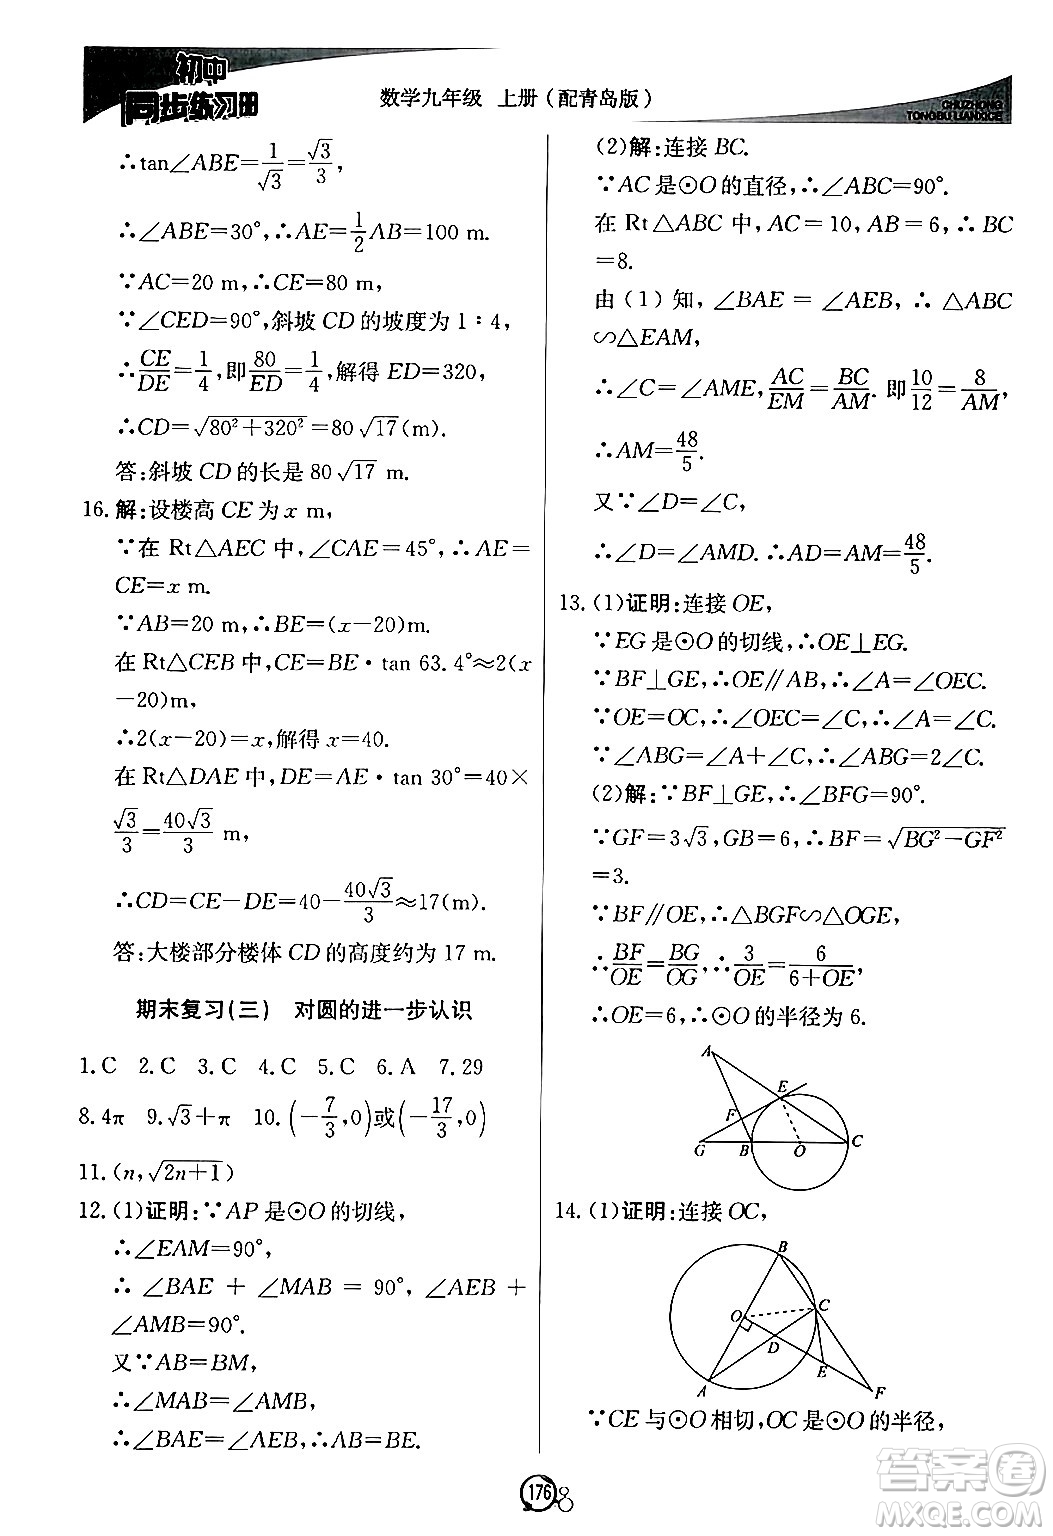 初中
同步练习册
数学九年级 上册(配青岛版)
CHUZHONG
TONGBU LIANXICE
∴tan∠ABE=1/√3=√3/3,
∴∠ABE=30°,∴AE=1/2AB=100 m.
∵AC=20 m,∴CE=80 m.
∵∠CED=90°,斜坡 CD 的坡度为 1∶4,
∴CE/DE=1/4,即80/ED=1/4,解得 ED=320,
∴CD=√(80²+320²)=80√17(m).
答:斜坡 CD 的长是 80√17 m.
16. 解:设楼高 CE 为 x m,
∵在 Rt△AEC 中,∠CAE=45°,∴AE=
CE=x m.
∵AB=20 m,∴BE=(x-20)m.
在 Rt△CEB 中,CE=BE·tan 63.4°≈2(x
-20)m,
∴2(x-20)=x,解得 x=40.
在 Rt△DAE 中,DE=AE·tan 30°=40×
√3/3=40√3/3 m,
∴CD=CE-DE=40-40√3/3≈17(m).
答:大楼部分楼体 CD 的高度约为 17 m.
期末复习(三) 对圆的进一步认识
1.C 2.C 3.C 4.C 5.C 6.A 7.29
8.4π 9.√3+π 10.(-7/3,0)或(-17/3,0)
11.(n,√(2n+1))
12.(1)证明:∵AP 是⊙O 的切线,
∴∠EAM=90°,
∴∠BAE + ∠MAB = 90°, ∠AEB +
∠AMB=90°.
又∵AB=BM,
∴∠MAB=∠AMB,
∴∠BAE=∠AEB,∴AB=BE.
(2)解:连接 BC.
∵AC 是⊙O 的直径,∴∠ABC=90°.
在 Rt△ABC 中,AC=10,AB=6,∴BC
=8.
由(1)知,∠BAE=∠AEB,∴△ABC
∽△EAM,
∴∠C=∠AME,AC/EM=BC/AM. 即10/12=8/AM,
∴AM=48/5.
又∵∠D=∠C,
∴∠D=∠AMD.∴AD=AM=48/5.
13.(1)证明:连接 OE,
∵EG 是⊙O 的切线,∴OE⊥EG.
∵BF⊥GE,∴OE∥AB,∴∠A=∠OEC.
∵OE=OC,∴∠OEC=∠C,∴∠A=∠C.
∵∠ABG=∠A+∠C,∴∠ABG=2∠C.
(2)解:∵BF⊥GE,∴∠BFG=90°.
∵GF=3√3,GB=6,∴BF=√(BG²-GF²)
=3.
∵BF∥OE,∴△BGF∽△OGE,
∴BF/OE=BG/OG,∴3/OE=6/(6+OE),
∴OE=6,∴⊙O 的半径为 6.
A
E
F
G B O C
14.(1)证明:连接 OC,
B
O C
D
E
A F
∵CE 与⊙O 相切,OC 是⊙O 的半径,
176
答案圈
MXQE.COM